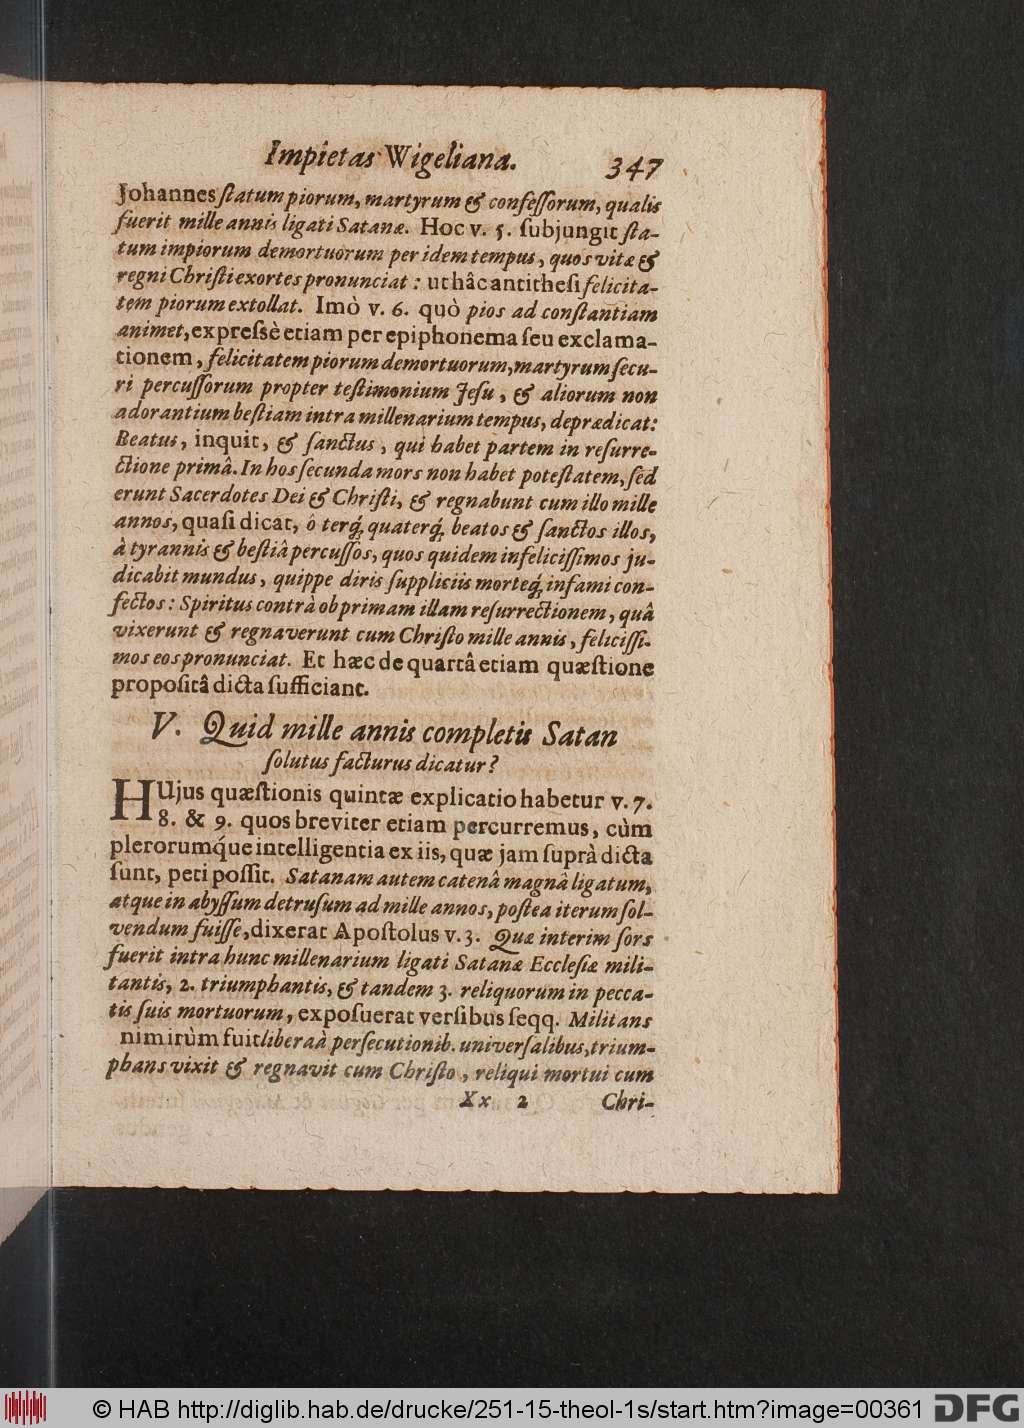 Impietas Wigeliana. 347
Johannes ſtatum piorum, martyrum & confeſſorum, qualis
fuerit mille annis ligati Satanæ. Hoc v. 5. ſubjungit ſta-
tum impiorum demortuorum per idem tempus, quos vitæ &
regni Chriſti exortes pronunciat: ut hâc antitheſi felicita-
tem piorum extollat. Imò v. 6. quò pios ad conſtantiam
animet, expreſsè etiam per epiphonema ſeu exclama-
tionem, felicitatem piorum demortuorum, martyrum ſecu-
ri percuſſorum propter teſtimonium Jeſu, & aliorum non
adorantium beſtiam intra millenarium tempus, deprædicat:
Beatus, inquit, & ſanctus, qui habet partem in reſurre-
ctione primâ. In hos ſecunda mors non habet poteſtatem, ſed
erunt Sacerdotes Dei & Chriſti, & regnabunt cum illo mille
annos, quaſi dicat, ô terq́; quaterq́; beatos & ſanctos illos,
à tyrannis & beſtiâ percuſſos, quos quidem infeliciſſimos ju-
dicabit mundus, quippe diris ſuppliciis morteq́; infami con-
fectos: Spiritus contrà ob primam illam reſurrectionem, quâ
vixerunt & regnaverunt cum Chriſto mille annis, feliciſſi-
mos eos pronunciat. Et hæc de quartâ etiam quæſtione
propoſitâ dicta ſufficiant.
V. Quid mille annis completis Satan
ſolutus facturus dicatur?
HUjus quæſtionis quintæ explicatio habetur v. 7.
8. & 9. quos breviter etiam percurremus, cùm
plerorumq́ue intelligentia ex iis, quæ jam ſuprà dicta
ſunt, peti poſſit. Satanam autem catenâ magnâ ligatum,
atque in abyſſum detruſum ad mille annos, poſtea iterum ſol-
vendum fuiſſe, dixerat Apoſtolus v. 3. Quæ interim ſors
fuerit intra hunc millenarium ligati Satanæ Eccleſiæ mili-
tantis, 2. triumphantis, & tandem 3. reliquorum in pecca-
tis ſuis mortuorum, expoſuerat verſibus ſeqq. Militans
nimirùm fuit libera à perſecutionib. univerſalibus, trium-
phans vixit & regnavit cum Chriſto, reliqui mortui cum
Xx 2 Chri-
© HAB http://diglib.hab.de/drucke/251-15-theol-1s/start.htm?image=00361 DFG